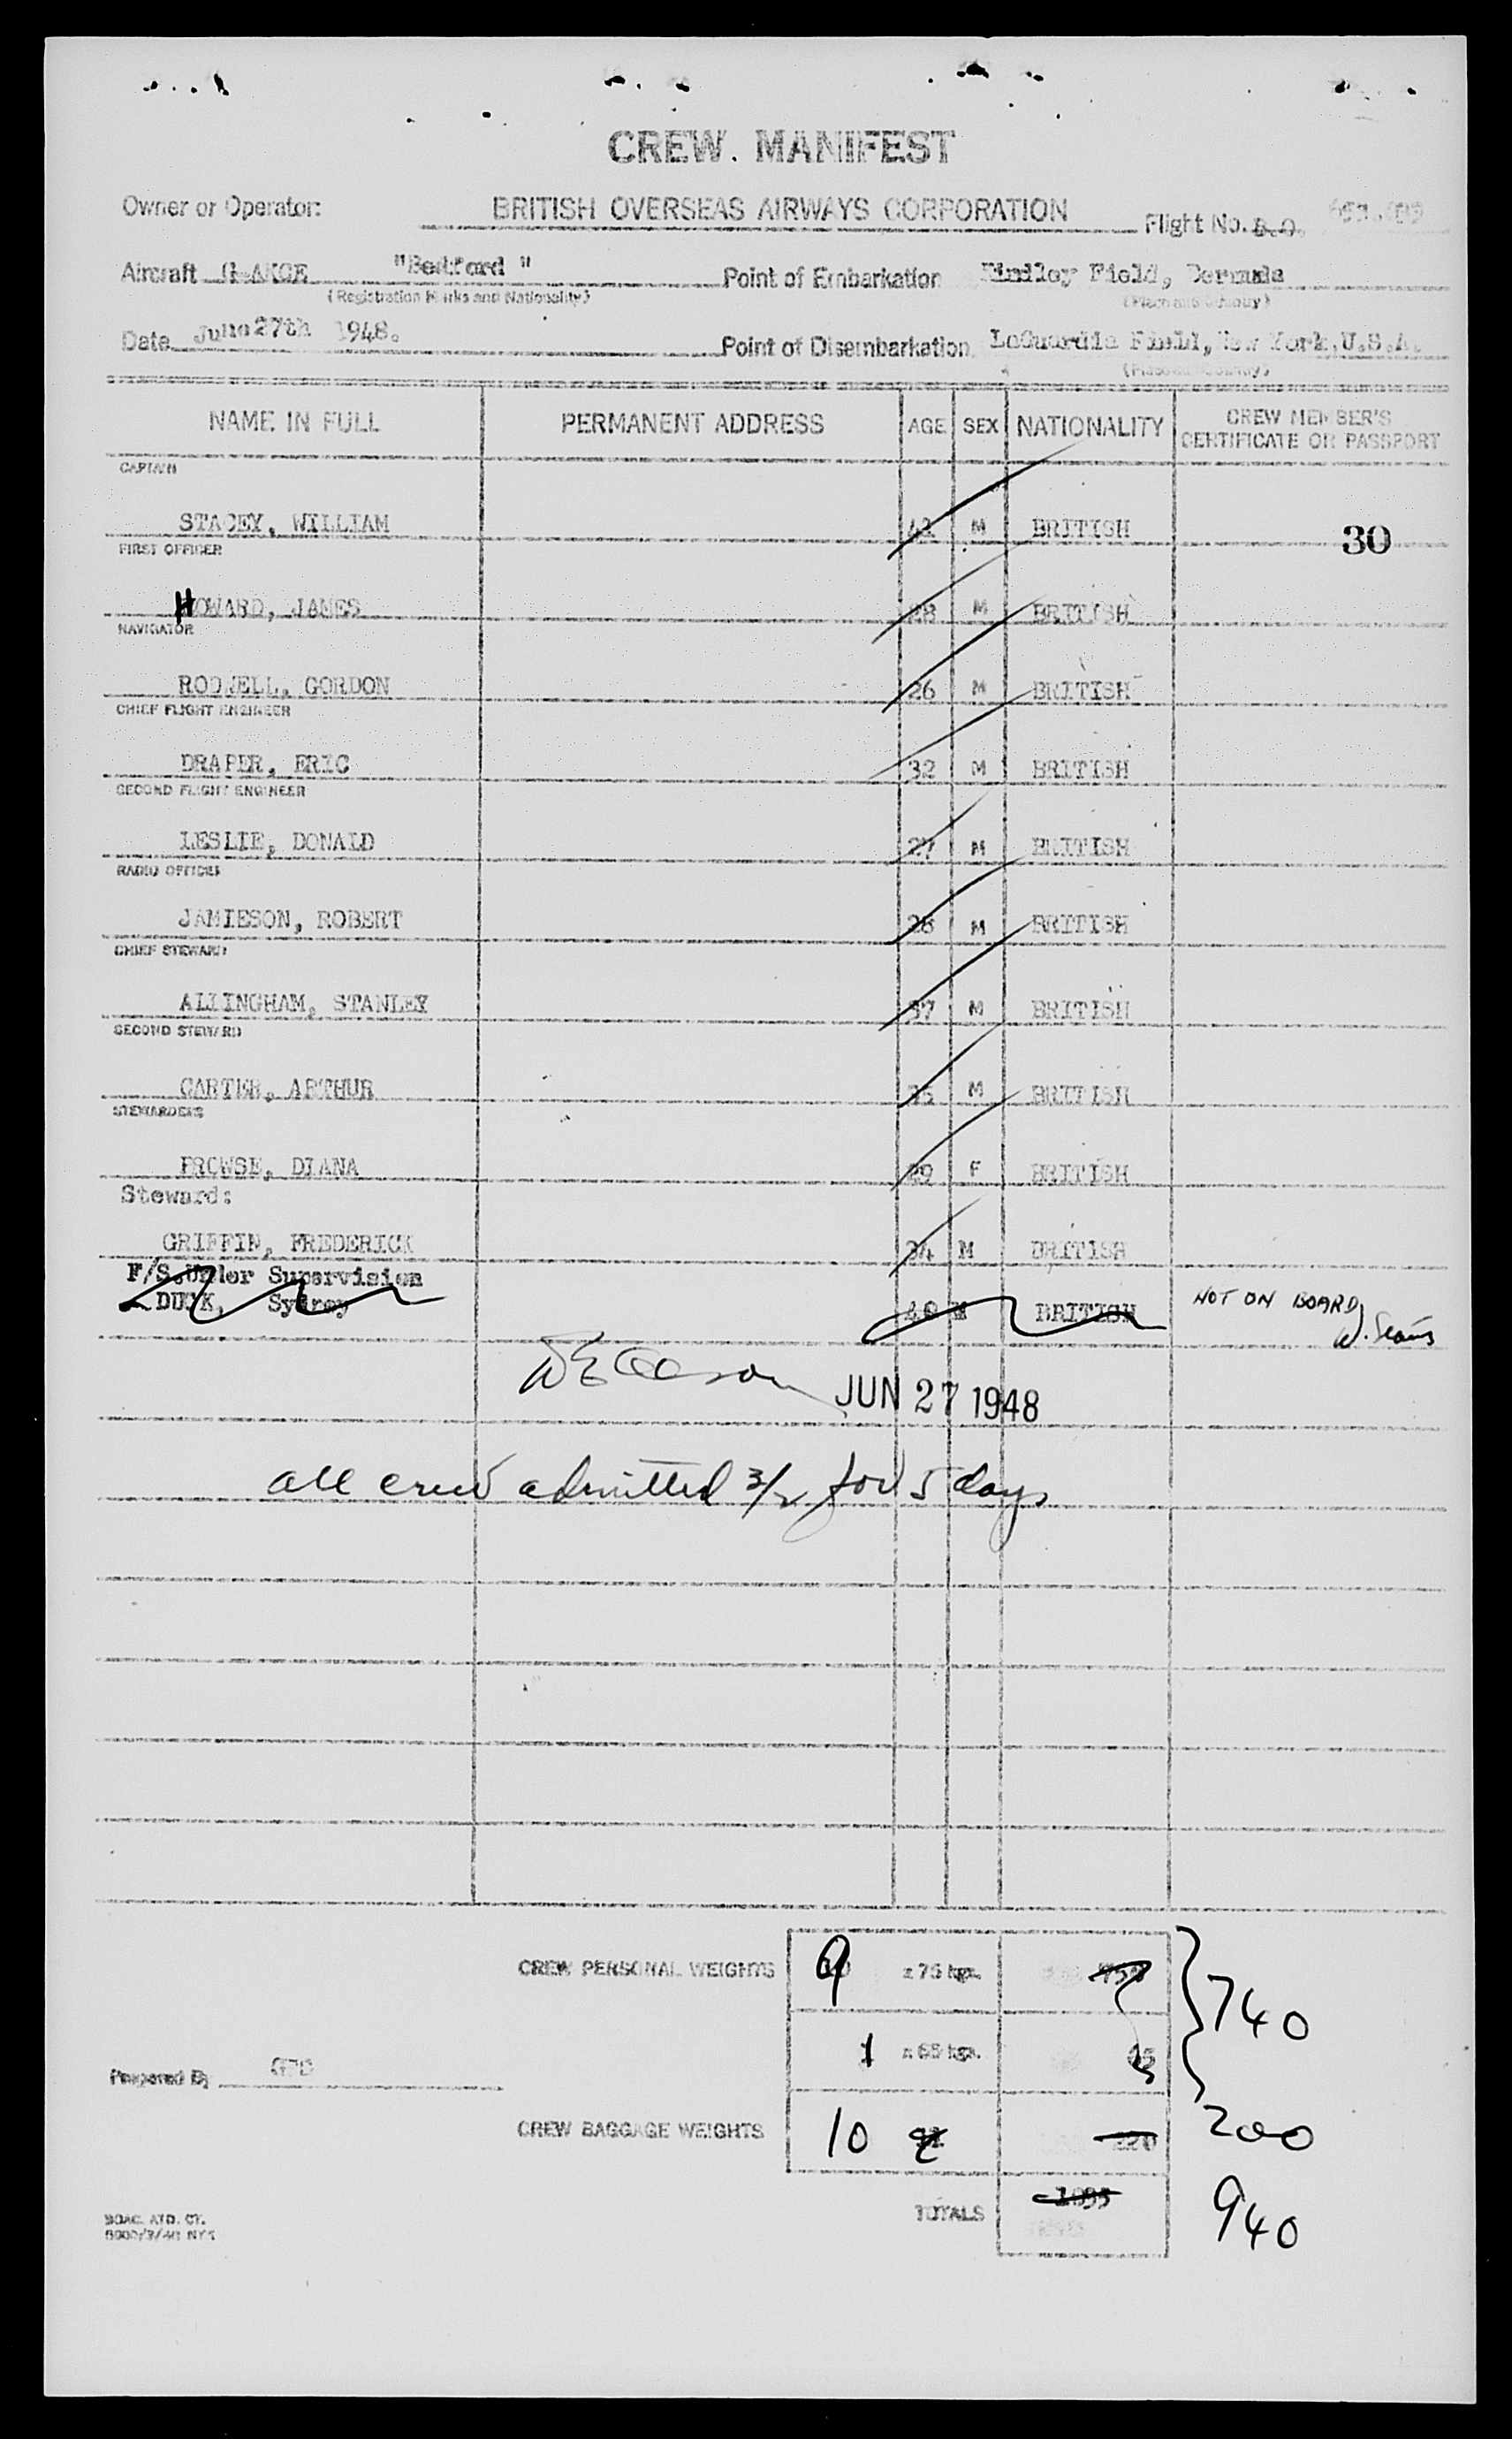 CREW. MANIFEST
Owner or Operator: BRITISH OVERSEAS AIRWAYS CORPORATION Flight No. B.O.
Aircraft G-AKGE "Bedford" Point of Embarkation Kindley Field, Bermuda
(Registration Marks and Nationality) (Place and Country)
Date June 27th 1948. Point of Disembarkation LaGuardia Field, New York, U.S.A.
(Place and Country)
NAME IN FULL PERMANENT ADDRESS AGE SEX NATIONALITY CREW MEMBER'S
CERTIFICATE OR PASSPORT
CAPTAIN
STACEY, WILLIAM 41 M BRITISH 30
FIRST OFFICER
HOWARD, JAMES 28 M BRITISH
NAVIGATOR
RODWELL, GORDON 26 M BRITISH
CHIEF FLIGHT ENGINEER
DRAPER, ERIC 32 M BRITISH
SECOND FLIGHT ENGINEER
LESLIE, DONALD 27 M BRITISH
RADIO OFFICER
JAMIESON, ROBERT M BRITISH
CHIEF STEWARD
ALLINGHAM, STANLEY 37 M BRITISH
SECOND STEWARD
CARTER, ARTHUR M BRITISH
STEWARDESS
PROWSE, DIANA 29 F BRITISH
Steward:
GRIFFIN, FREDERICK 34 M BRITISH
F/S.Under Supervision
Sydney M BRITISH NOT ON BOARD
JUN 27 1948
all crew admitted 3/2 for 5 days
CREW PERSONAL WEIGHTS 9 x 75 kgs. 740
1 x 65 kgs. 65
Prepared By
CREW BAGGAGE WEIGHTS 10 220 200
TOTALS 1035 940
BOAC. ATD. CT.